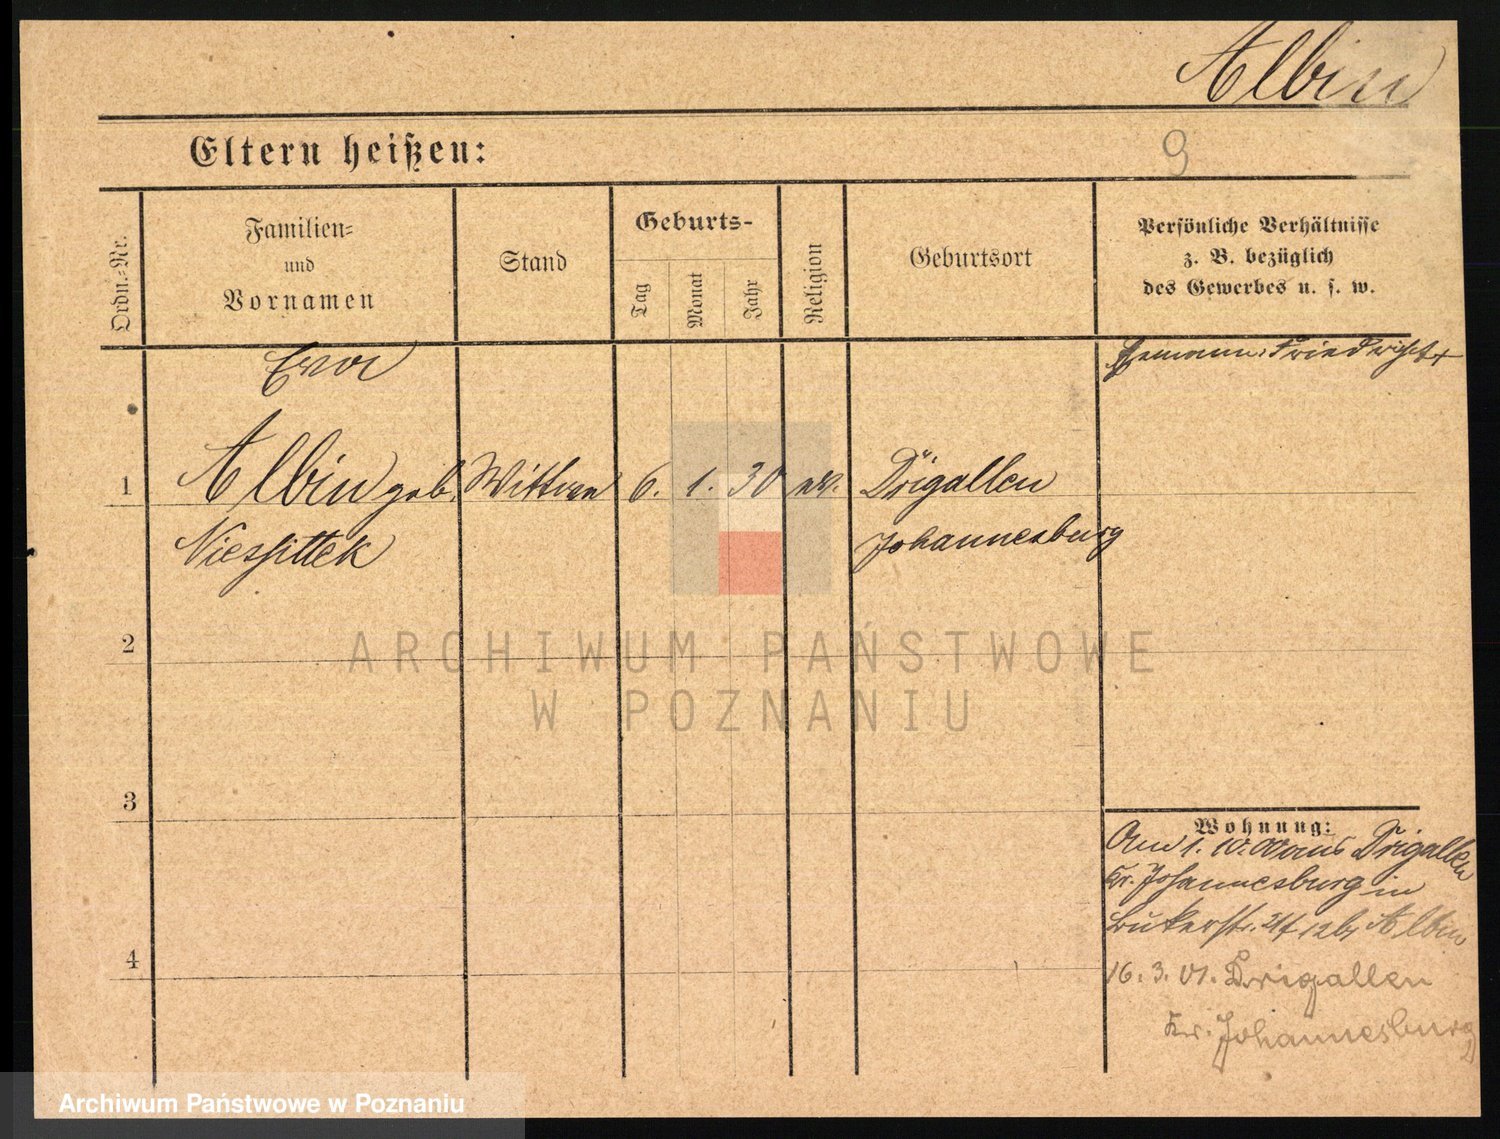 Albin
Eltern heißen:
9
Ordn.-Nr.
Familien- und Vornamen
Stand
Geburts-
Tag
Monat
Jahr
Religion
Geburtsort
Persönliche Verhältnisse
z. B. bezüglich
des Gewerbes u. s. w.
Eva
Ehemann: Friedrich †
1 Albin geb. Wittwe 6. 1. 30 ev. Drigallen
Niessittek Johannesburg
2
3
Wohnung:
Am 1. 10. 00 aus Drigallen
Kr. Johannesburg in
Bukerstr. 12 b/ Albin
4
16. 3. 01. Drigallen
Kr. Johannesburg
ARCHIWUM PAŃSTWOWE
W POZNANIU
Archiwum Państwowe w Poznaniu